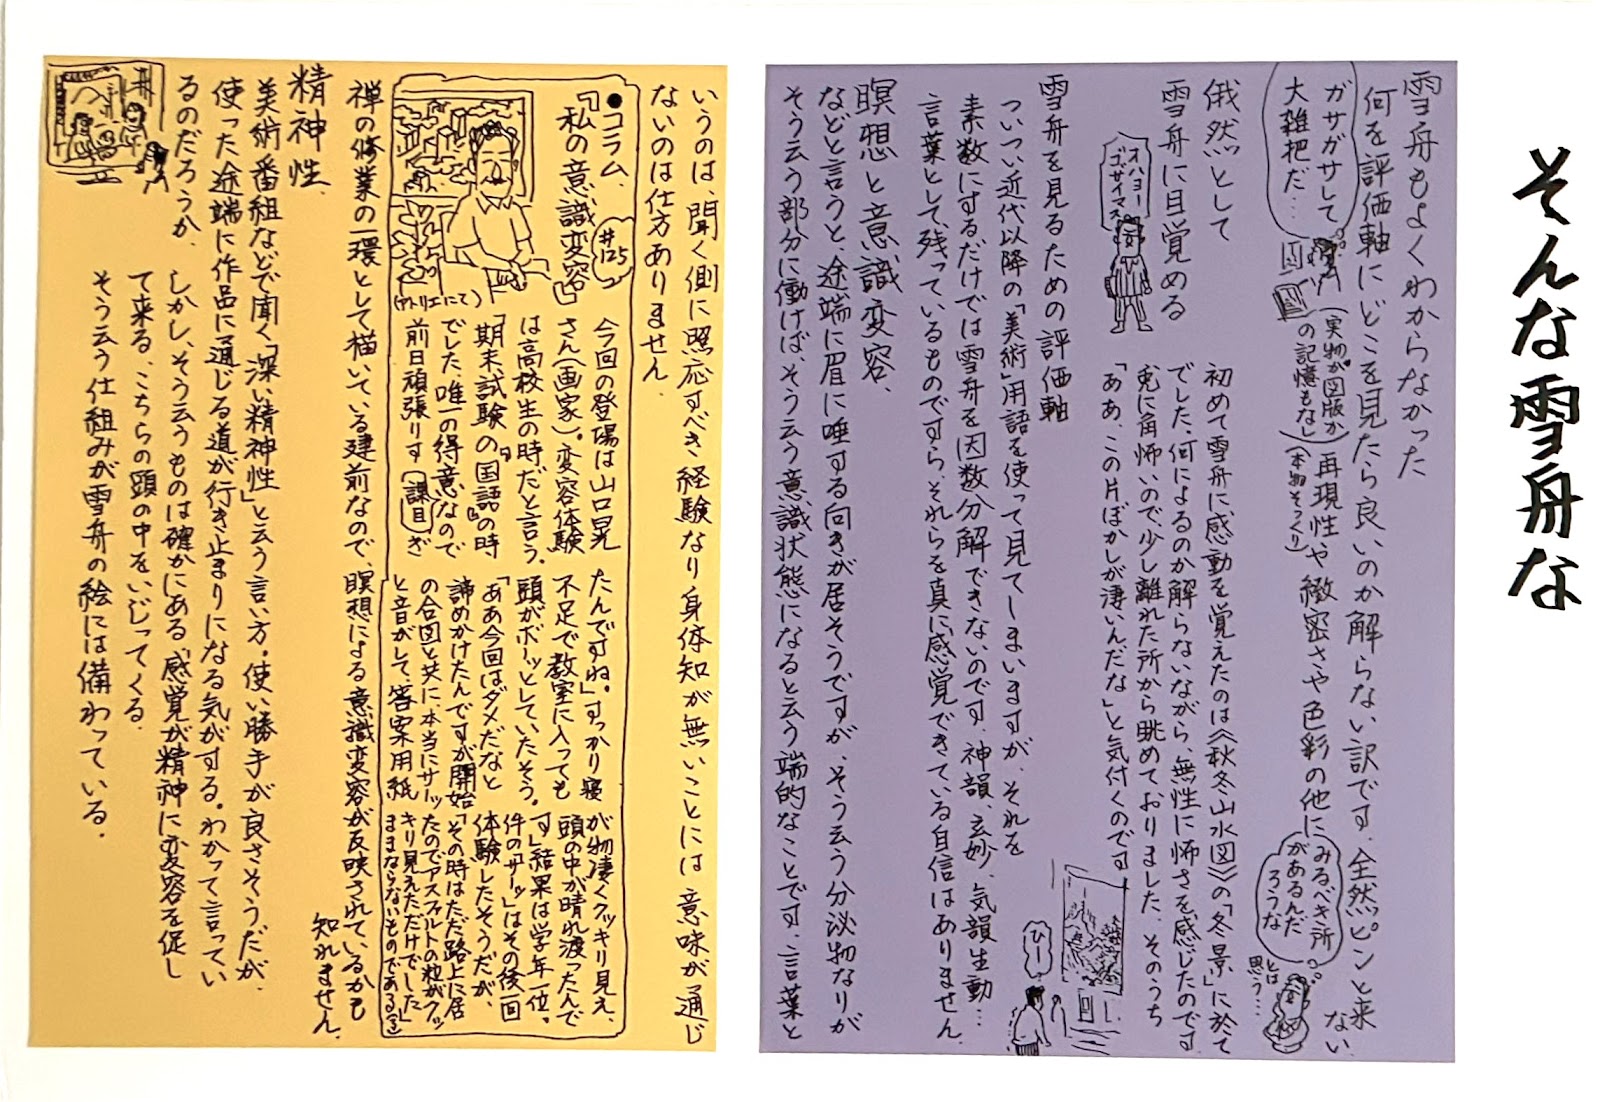 そんな雪舟な
雪舟もよくわからなかった
何を評価軸にどこを見たら良いのか解らない訳です。全然ピンと来ない
ガサガサして
大雑把だ…
(実物か図版か
の記憶もなし)
再現性や緻密さや色彩の他に
(本物そっくり)
みるべき所
があるんだ
ろうな
とは
思う…
俄然として
雪舟に目覚める
オハヨー
ゴザイマス
初めて雪舟に感動を覚えたのは《秋冬山水図》の「冬景」に於て
でした。何によるのか解らないながら、無性に怖さを感じたのです
兎に角怖いので、少し離れた所から眺めておりました。そのうち
「ああ、この片ぼかしが凄いんだな」と気付くのです
ひー
雪舟を見るための評価軸
ついつい近代以降の「美術」用語を使って見てしまいますが、それを
素数にするだけでは雪舟を因数分解できないのです。神韻、玄妙、気韻生動…
言葉として残っているものですら、それらを真に感覚できている自信はありません。
瞑想と意識変容、
などと言うと、途端に眉に唾する向きが居そうですが、そう云う分泌物なりが
そう云う部分に働けば、そう云う意識状態になると云う端的なことです。言葉と
いうのは、聞く側に照応すべき経験なり身体知が無いことには意味が通じ
ないのは仕方ありません。
●コラム、
『私の意識変容』
#125
(アトリエにて)
今回の登場は山口晃
さん(画家)。変容体験
は高校生の時だと言う。
「期末試験の『国語』の時
でした。唯一の得意なので
前日頑張りす
課目
ぎ
たんですね。」すっかり寝
不足で教室に入っても
頭がボーッとしていたそう。
「ああ今回はダメだなと
諦めかけたんですが、開始
の合図と共に、本当にサーッ
と音がして、答案用紙
が物凄くクッキリ見え、
頭の中が晴れ渡ったんで
す」結果は学年一位。
件の「サーッ」はその後一回
体験したそうだが、
「その時はただ路上に居
たのでアスファルトの粒がクッ
キリ見えただけでした」
ままならないものである(金)
禅の修業の一環として描いている建前なので、瞑想による意識変容が反映されているかも
知れません。
精神性
美術番組などで聞く「深い精神性」と云う言い方。使い勝手が良さそうだが、
使った途端に作品に通じる道が行き止まりになる気がする。わかって言ってい
るのだろうか、
しかし、そう云うものは確かにある。感覚が精神に変容を促し
て来る、こちらの頭の中をいじってくる
そう云う仕組みが雪舟の絵には備わっている。